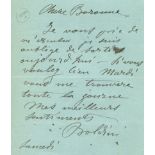 Chère Baronne
Je vous prie de
m'excuser je suis
obligé de sortir
aujourd'hui - Si vous
voulez bien Mardi
vous me trouverez
toute la journée
Mes meilleurs
sentiments
Boldini
Samedi